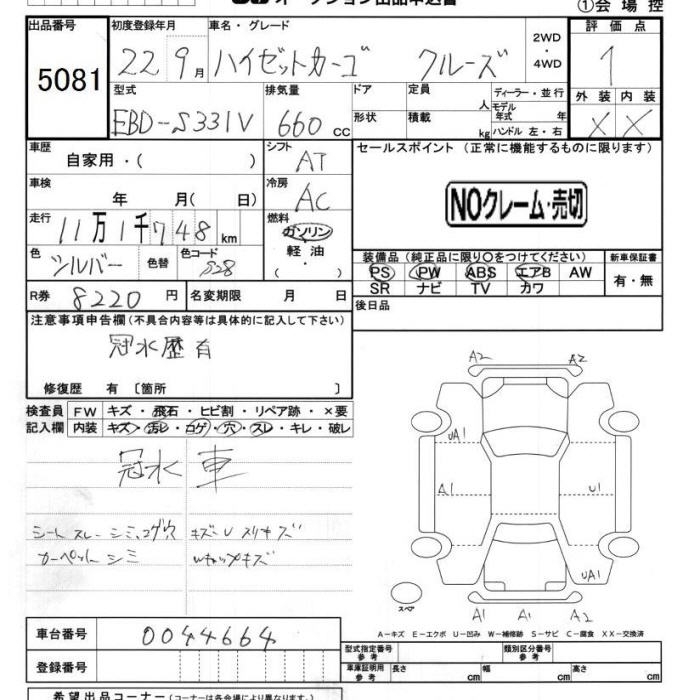 オークション出品申込書 ①会場控
出品番号 初度登録年月 車名・グレード 評価点
5081 22 9月 ハイゼットカーゴ クルーズ 2WD・4WD 1
型式 排気量 ドア 定員 人 ディーラー・並行 外装 内装
EBD-S331V 660 cc 形状 積載 kg モデル年式 年 ハンドル 左・右 X X
車歴 自家用・( ) シフト AT セールスポイント (正常に機能するものに限ります)
車検 年 月(日) 冷房 AC NOクレーム・売切
走行 11万1千748km 燃料 ガソリン
色 シルバー 色替 色コード S28 軽油・( )
装備品 (純正品に限り○をつけてください) 新車保証書
PS PW ABS エアB AW 有・無
SR ナビ TV カワ
R券 8220円 名変期限 月 日 後日品
注意事項申告欄(不具合内容等は具体的に記入して下さい)
冠水歴有
修復歴 有 〔箇所 〕
検査員 FW キズ・飛石・ヒビ割・リペア跡・×要
記入欄 内装 キズ・汚レ・コゲ・穴・スレ・キレ・破レ
冠水車
シートスレーシミ、コゲ穴 キズ-U スリキズ
カーペットシミ
A2 A2
UA1
A1 U1
UA1
スペア
A1 A1 A2
A-キズ E-エクボ U-凹み W-補修跡 S-サビ C-腐食 XX-交換済
車台番号 0044664
登録番号
型式指定番号参考 類別区分番号参考
車庫証明用参考 長さ cm 幅 cm 高さ cm
希望出品コーナー(コーナーは各会場により異なります。)